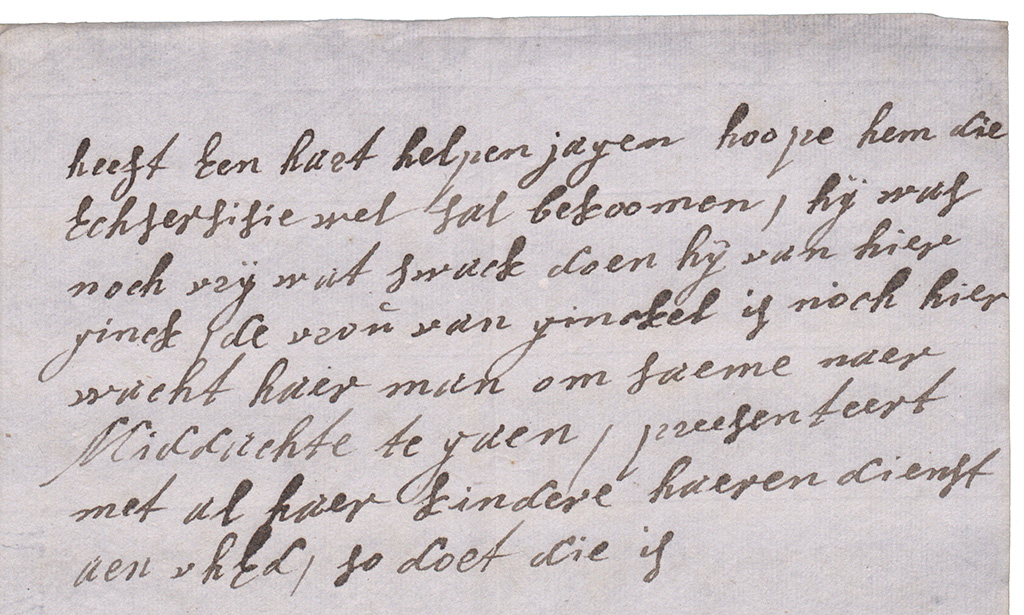 heeft Een hart helpen jagen hoope hem die
Echsersisie wel sal bekoomen, hÿ was
noch vrÿ wat swack doen hÿ van hier
ginck, de vrou van ginckel is noch hier
wacht haer man om saeme naer
Middachte te gaen, preesenteert
met al haer kindere haeren dienst
aen vhEd, so doet die is